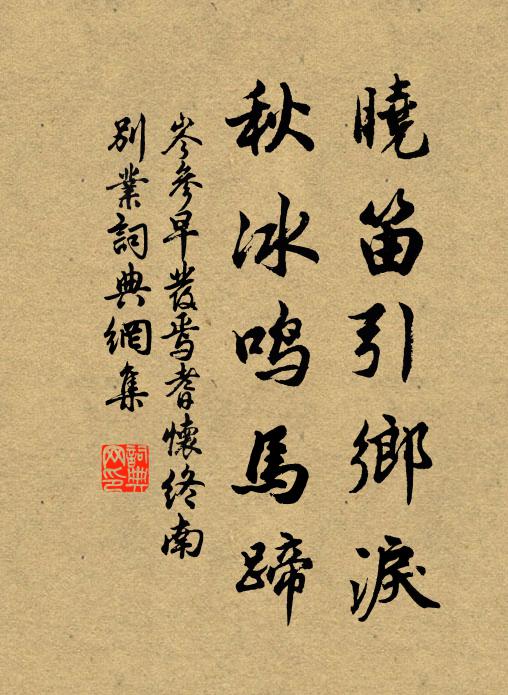 曉笛引鄉淚
秋冰鳴馬蹄
岑參早發焉耆懷終南
別業詞典網集
詞典網印